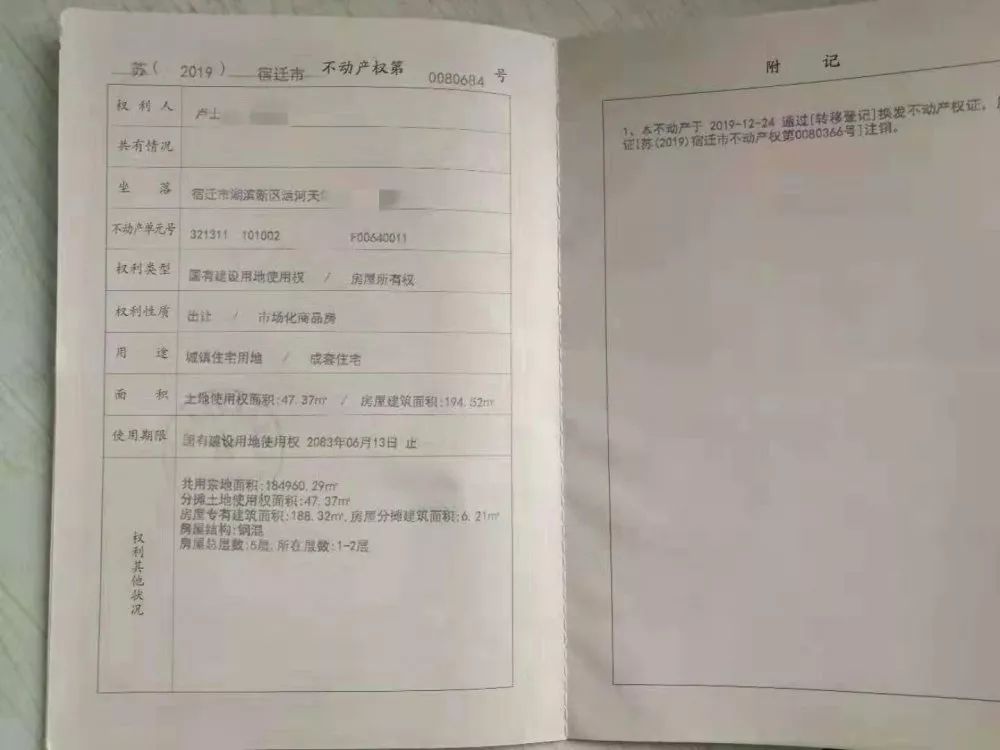 苏( 2019 ) 宿迁市 不动产权第 0080684 号
权利人 卢士
共有情况
坐落 宿迁市湖滨新区运河天
不动产单元号 321311 101002 F00640011
权利类型 国有建设用地使用权 / 房屋所有权
权利性质 出让 / 市场化商品房
用途 城镇住宅用地 / 成套住宅
面积 土地使用权面积:47.37㎡ / 房屋建筑面积:194.52㎡
使用期限 国有建设用地使用权 2083年06月13日 止
权利其他状况
共用宗地面积:184960.29㎡
分摊土地使用权面积:47.37㎡
房屋专有建筑面积:188.32㎡,房屋分摊建筑面积:6.21㎡
房屋结构:钢混
房屋总层数:5层,所在层数:1-2层
附记
1、本不动产于 2019-12-24 通过[转移登记]换发不动产权证,
证[苏(2019)宿迁市不动产权第0080366号]注销。